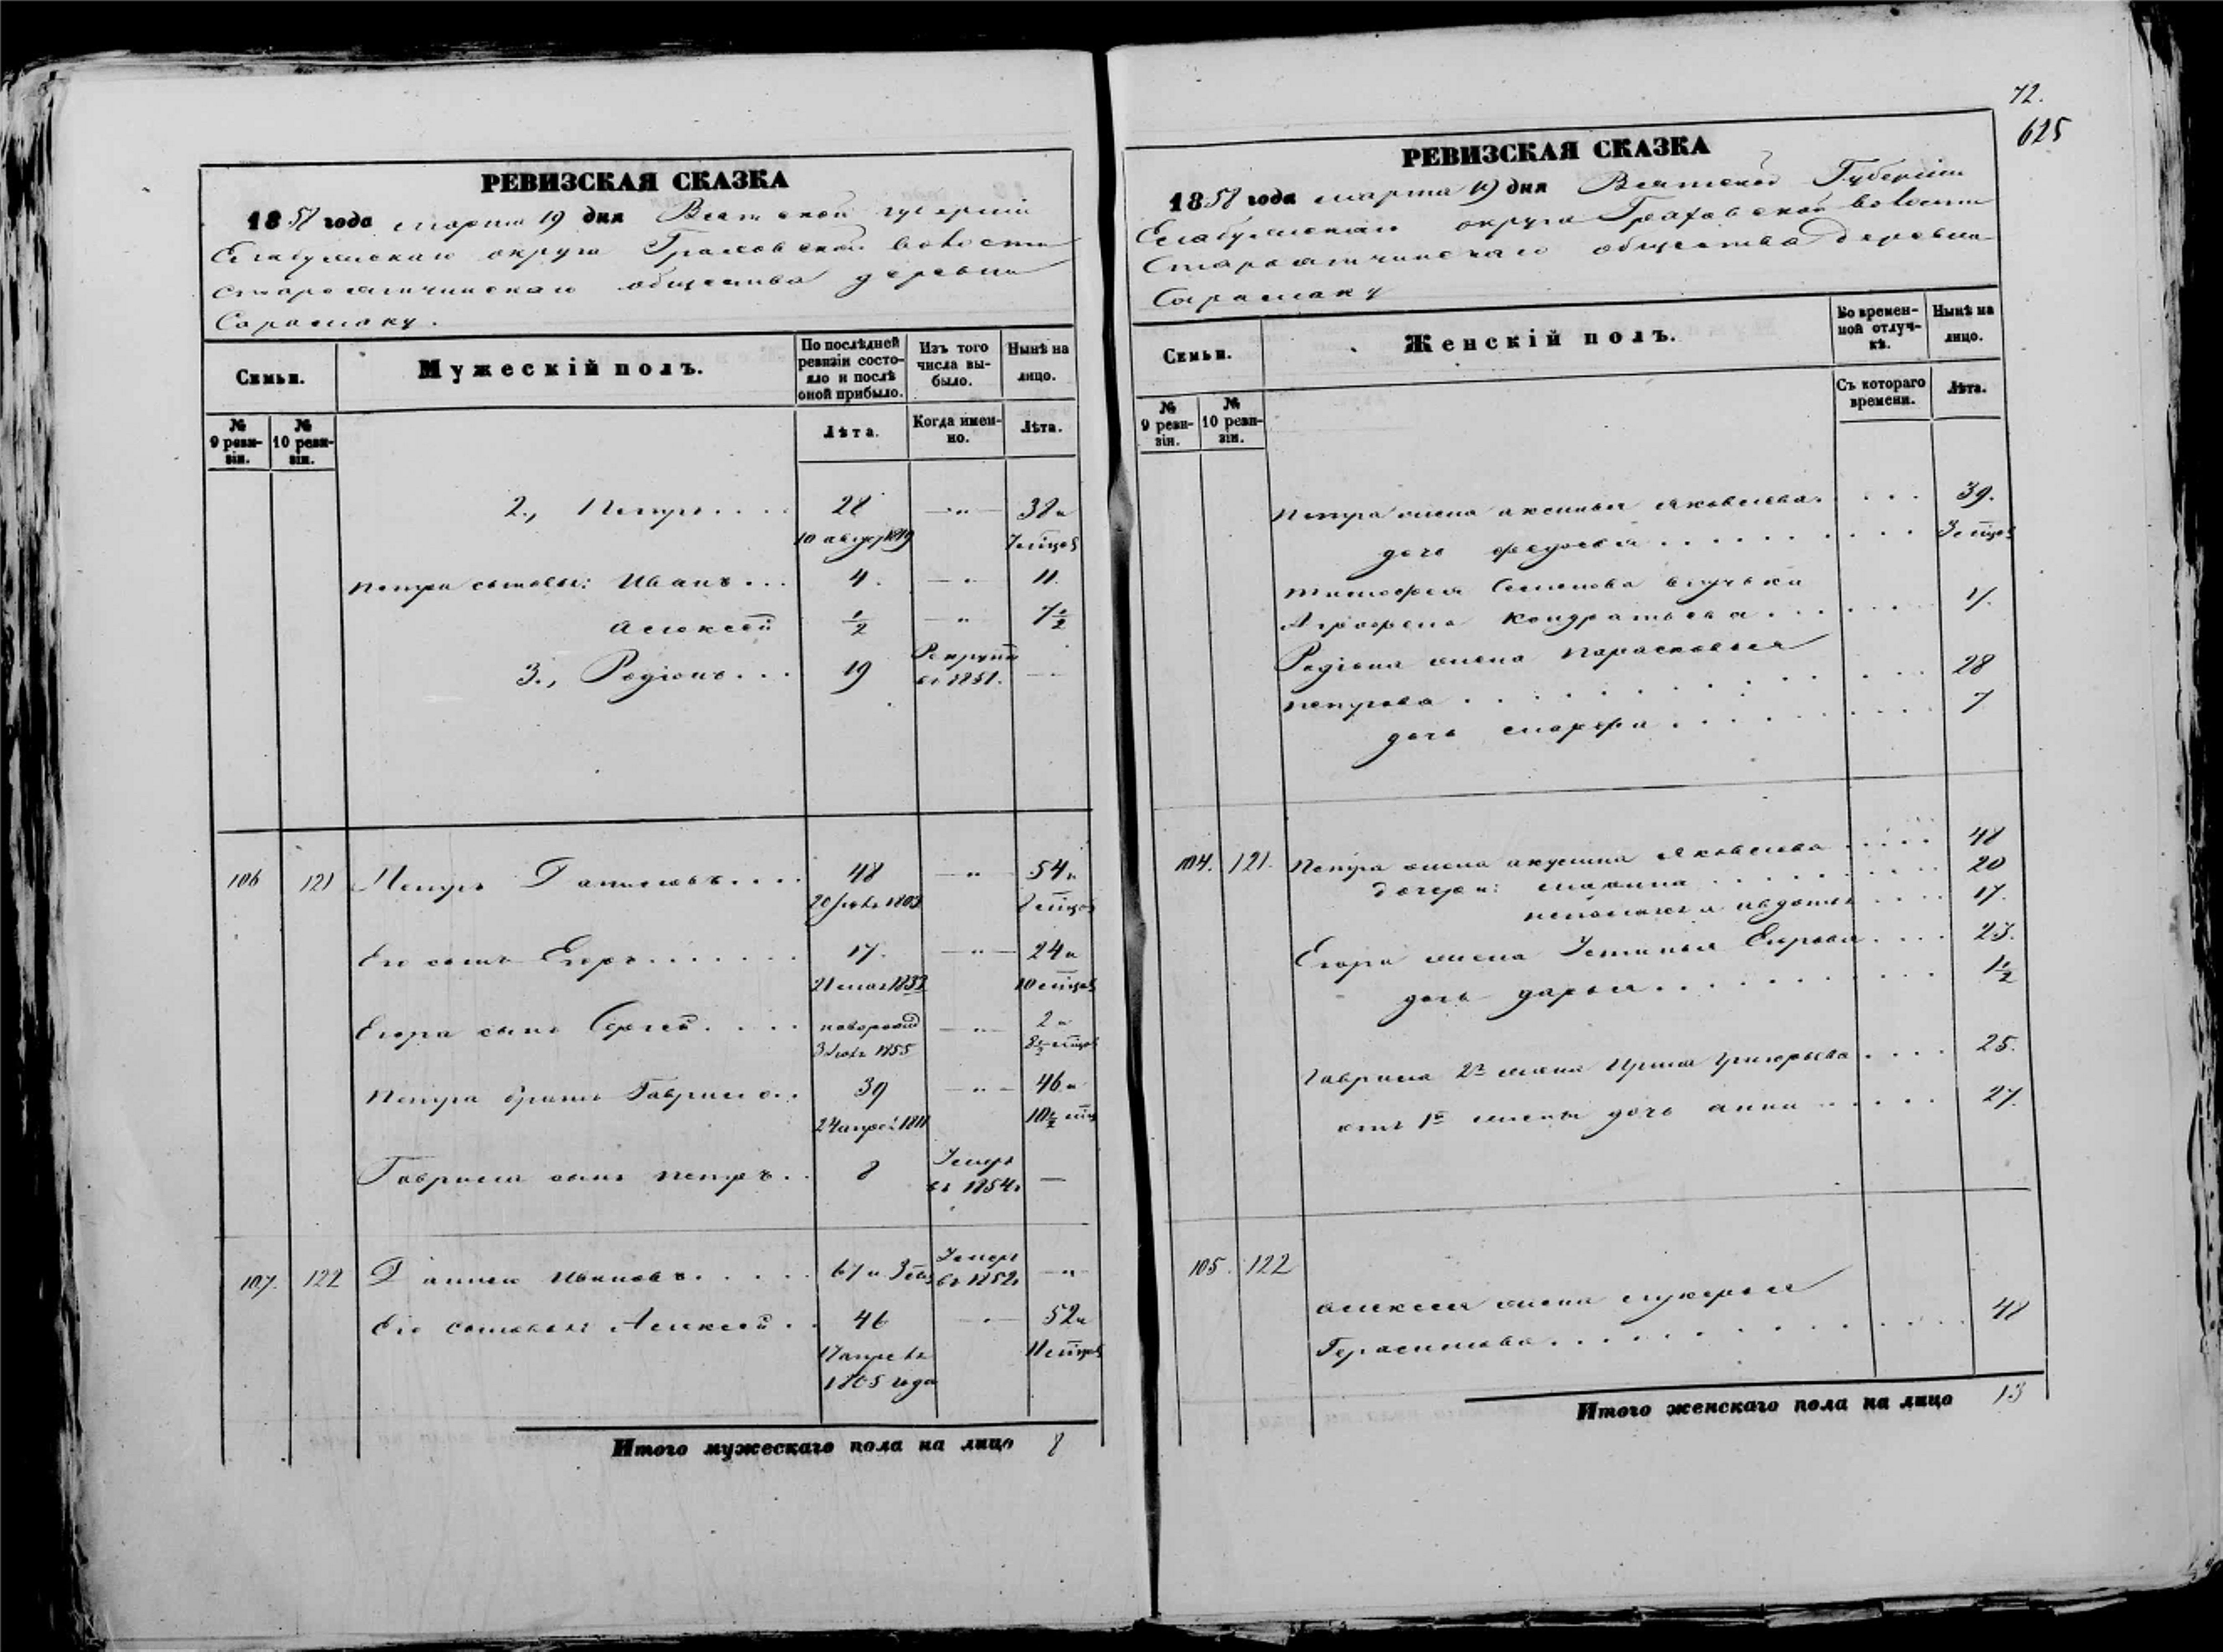 РЕВИЗСКАЯ СКАЗКА
1858 года марта 19 дня Вятской губерніи
Елабужскаго округа Граховской волости
Староятчинскаго общества деревни
Сарамаку.
Семьи.
Мужескій полъ.
По послѣдней ревизіи состояло и послѣ оной прибыло.
Изъ того числа выбыло.
Нынѣ на лицо.
№ 9 ревизіи.
№ 10 ревизіи.
Лѣта.
Когда именно.
Лѣта.
2., Петръ.... 28 —„— 38 и
7 мѣцов
Петра сыновья: Иванъ... 4. —„— 11.
Алексей 1/2 —„ 7 1/2
3., Родіонъ... 19 Рекрутъ въ 1851. —
106 121 Петръ Даниловъ.... 48 —„— 54 и
Его сынъ Егоръ....... 17. —„— 24 и
10 мѣцов
Егора сынъ Сергей.... новорожд —„— 2 и
1855 8 1/2 мѣцов
Петра братъ Гаврило.. 39 —„— 46 и
24 апрел 1811 10 1/2 мѣц
Гаврила сынъ Петръ.. 8 Умеръ въ 1854 г —
107. 122 Данило Ивановъ..... Умеръ въ 1852 г —„
Его сыновья Алексей.. 46 —„— 52 и
17 апреля 11 мѣцов
1805 года
Итого мужескаго пола на лицо 8
72.
625
РЕВИЗСКАЯ СКАЗКА
1858 года марта 19 дня Вятской Губерніи
Елабужскаго округа Граховской волости
Староятчинскаго общества деревни
Сарамаку
Семьи.
Женскій полъ.
Во временной отлучкѣ.
Нынѣ на лицо.
№ 9 ревизіи.
№ 10 ревизіи.
Съ котораго времени.
Лѣта.
Петра жена Аксинья Яковлева.... 39.
дочь Федосья......... 3 мѣцов
Тимофея Семенова внучька
Аграфена Кондратьева...... 7.
Родіона жена Парасковья
Петрова.......... 28
дочь Марфа......... 7
104. 121. Петра жена Акулина Яковлева..... 48
дочери: 20
17.
Егора жена Устинья Егорова.... 23.
дочь Дарья......... 1 1/2
Гаврила 2я жена Ирина Григорьева.... 25.
отъ 1й жены дочь Анна..... 27.
105. 122
Алексея жена Лукерья
Герасимова............ 48
Итого женскаго пола на лицо 13